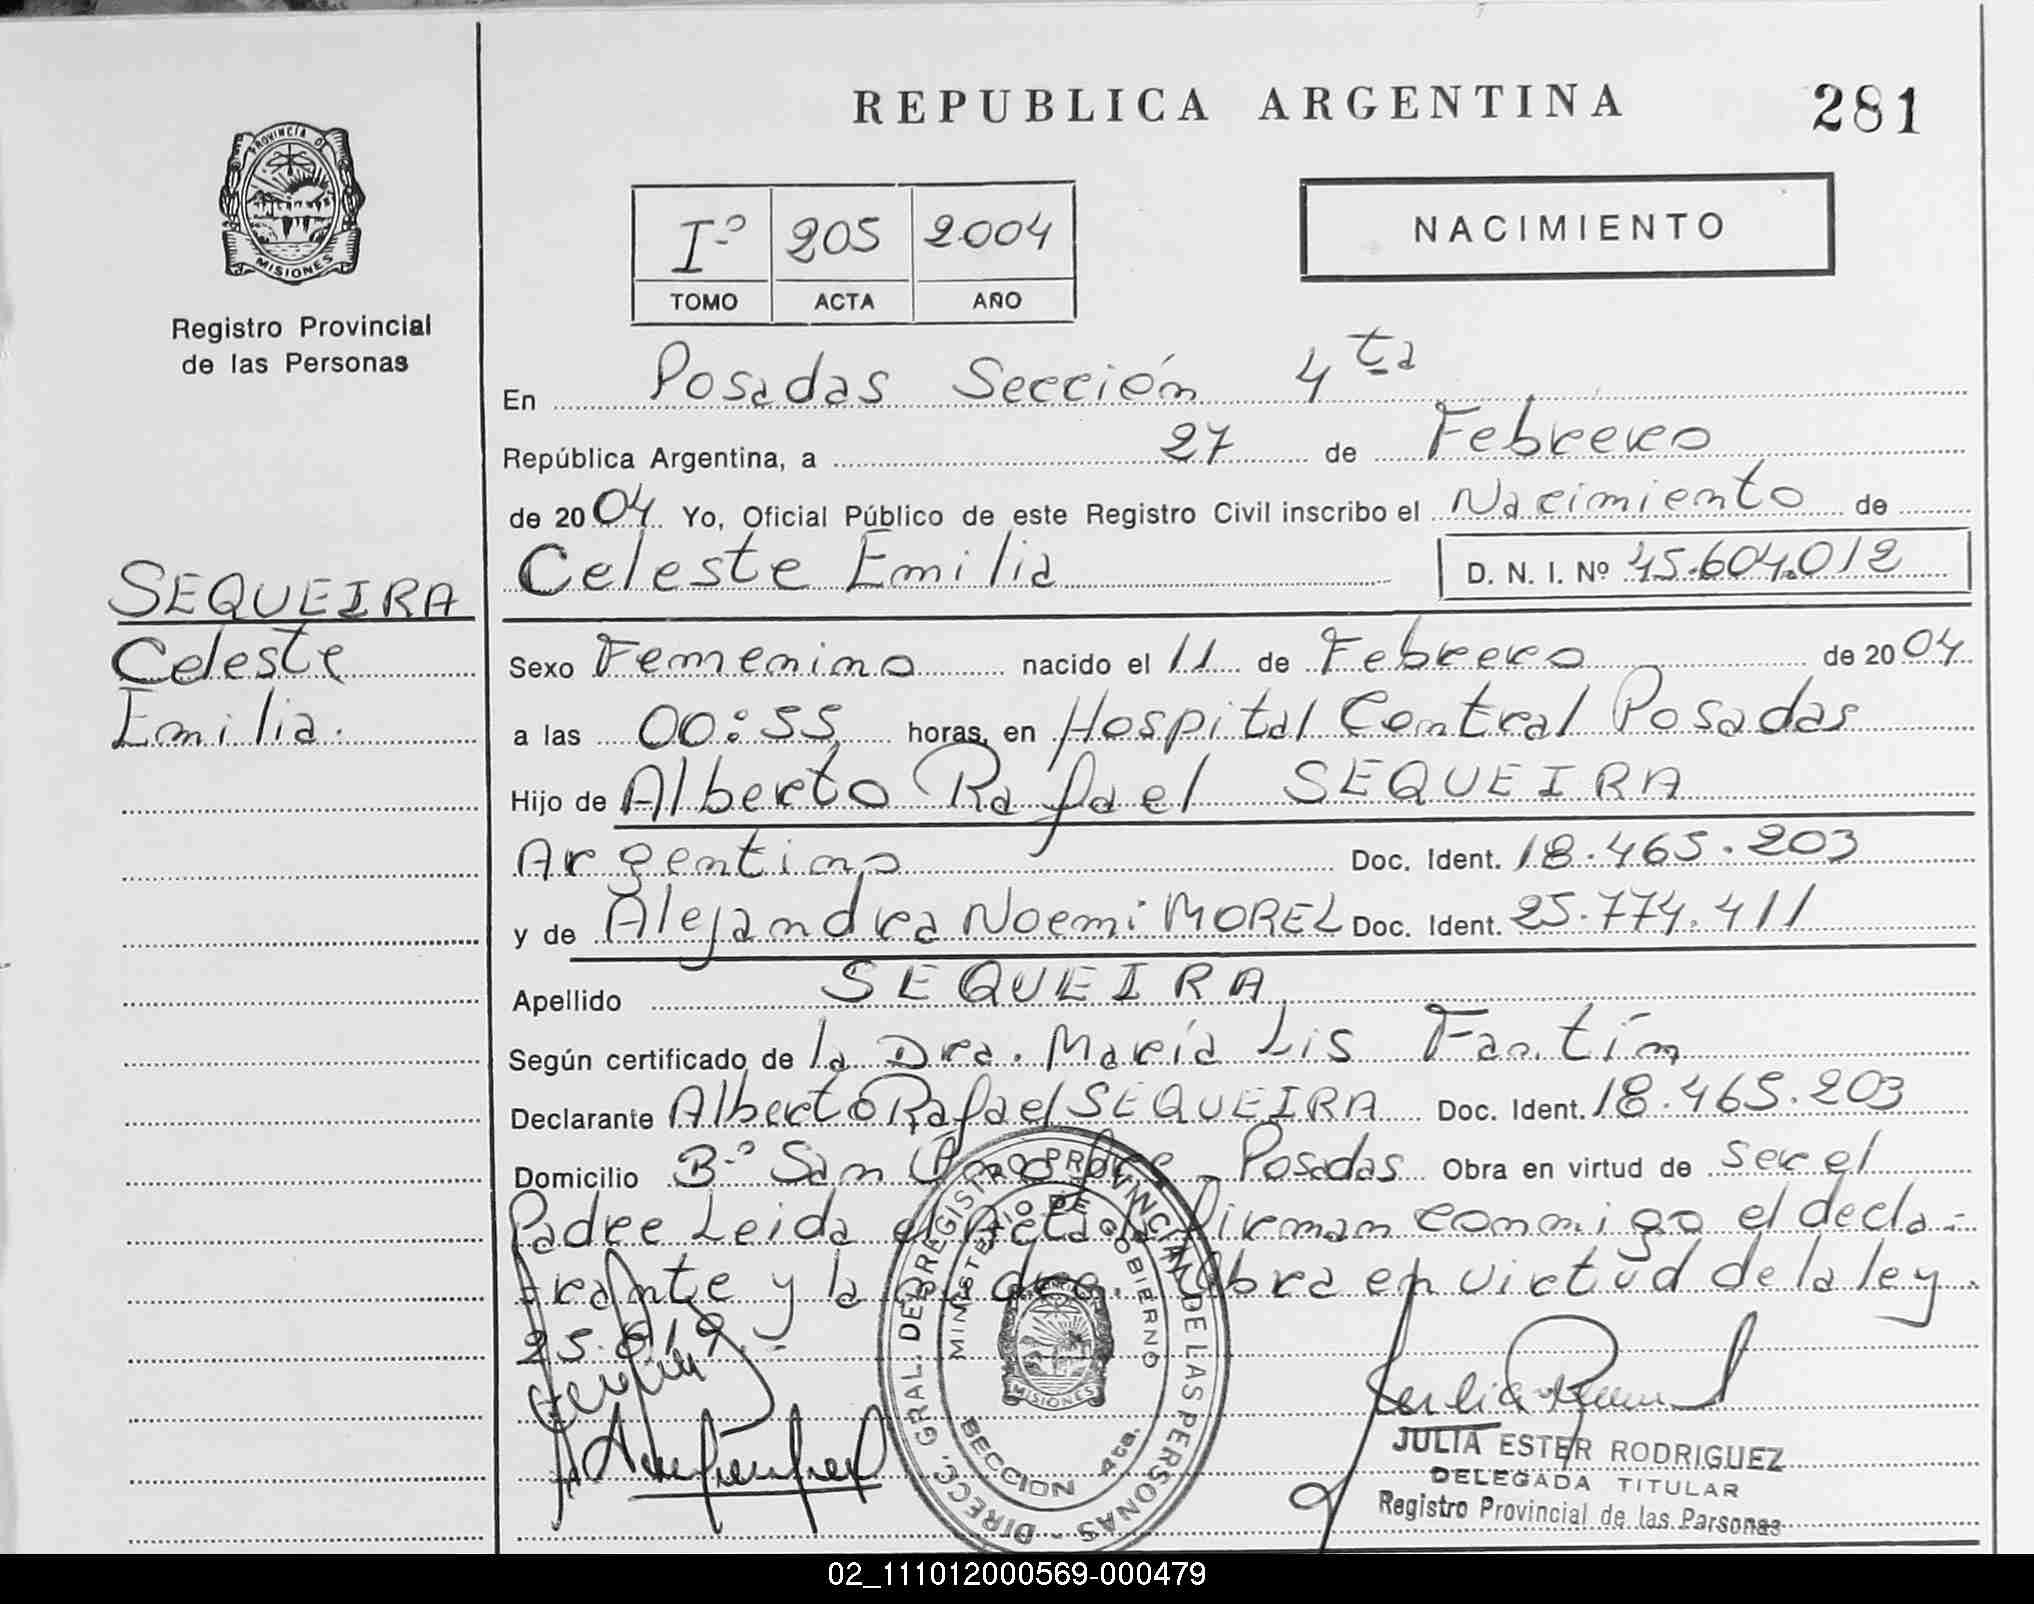 REPUBLICA ARGENTINA
281
PROVINCIA DE
MISIONES
Registro Provincial
de las Personas
Iº 205 2004
TOMO ACTA AÑO
NACIMIENTO
En Posadas Sección 4ta
República Argentina, a 27 de Febrero
de 2004 Yo, Oficial Público de este Registro Civil inscribo el Nacimiento de
Celeste Emilia D. N. I. Nº 45.604.012
SEQUEIRA
Celeste
Emilia.
Sexo Femenino nacido el 11 de Febrero de 2004
a las 00:55 horas, en Hospital Central Posadas
Hijo de Alberto Rafael SEQUEIRA
Argentino Doc. Ident. 18.465.203
y de Alejandra Noemi MOREL Doc. Ident. 25.774.411
Apellido SEQUEIRA
Según certificado de la Dra. María Lis Fantín
Declarante Alberto Rafael SEQUEIRA Doc. Ident. 18.465.203
Domicilio B.º San Onofre Posadas Obra en virtud de ser el
Padre Leida el Acta la firman conmigo el decla-
rante y la madre. Obra en virtud de la ley
25.819.-
DIRECC. GRAL. DEL REGISTRO PROVINCIAL DE LAS PERSONAS -
MINISTERIO DE GOBIERNO
MISIONES
SECCION 4ta.
JULIA ESTER RODRIGUEZ
DELEGADA TITULAR
Registro Provincial de las Personas
02_111012000569-000479